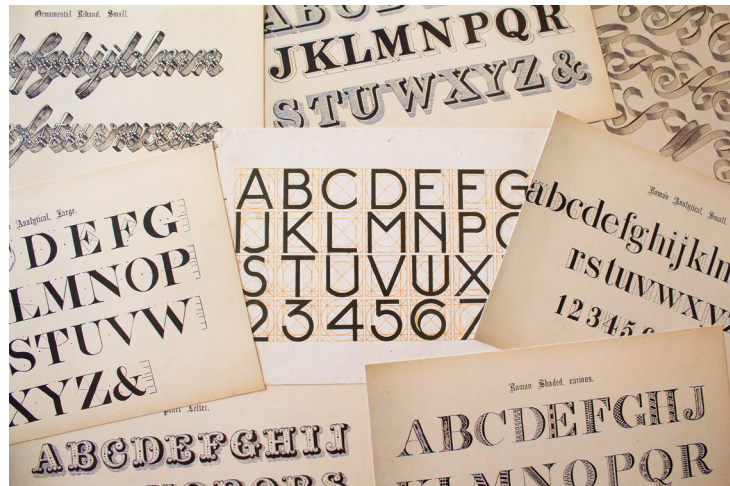 Ornamental Riband, Small.
ABCDEFGH
JKLMNPQR
STUVWXYZ&
Analytical, Large.
DEFG
LMNOP
STUVW
XYZ&
ABCDEFG
IJKLMNPQ
STUVWX
234567
Roman Analytical, Small.
abcdefghijklm
rstuvwxyz
123456
Letter.
ABCDEFGHIJ
Roman Shaded, various.
ABCDEFGHIJ
KLMNOPQR